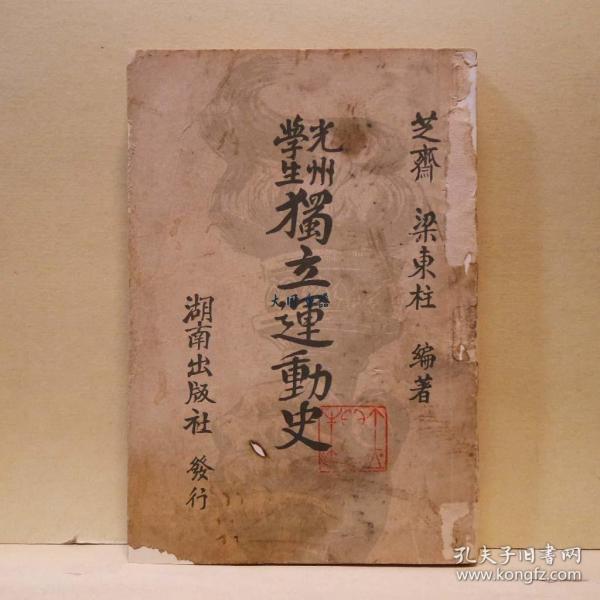 芝齋 梁東柱 編著
光州
學生
獨立運動史
湖南出版社 發行
孔夫子旧书网
www.kongfz.com